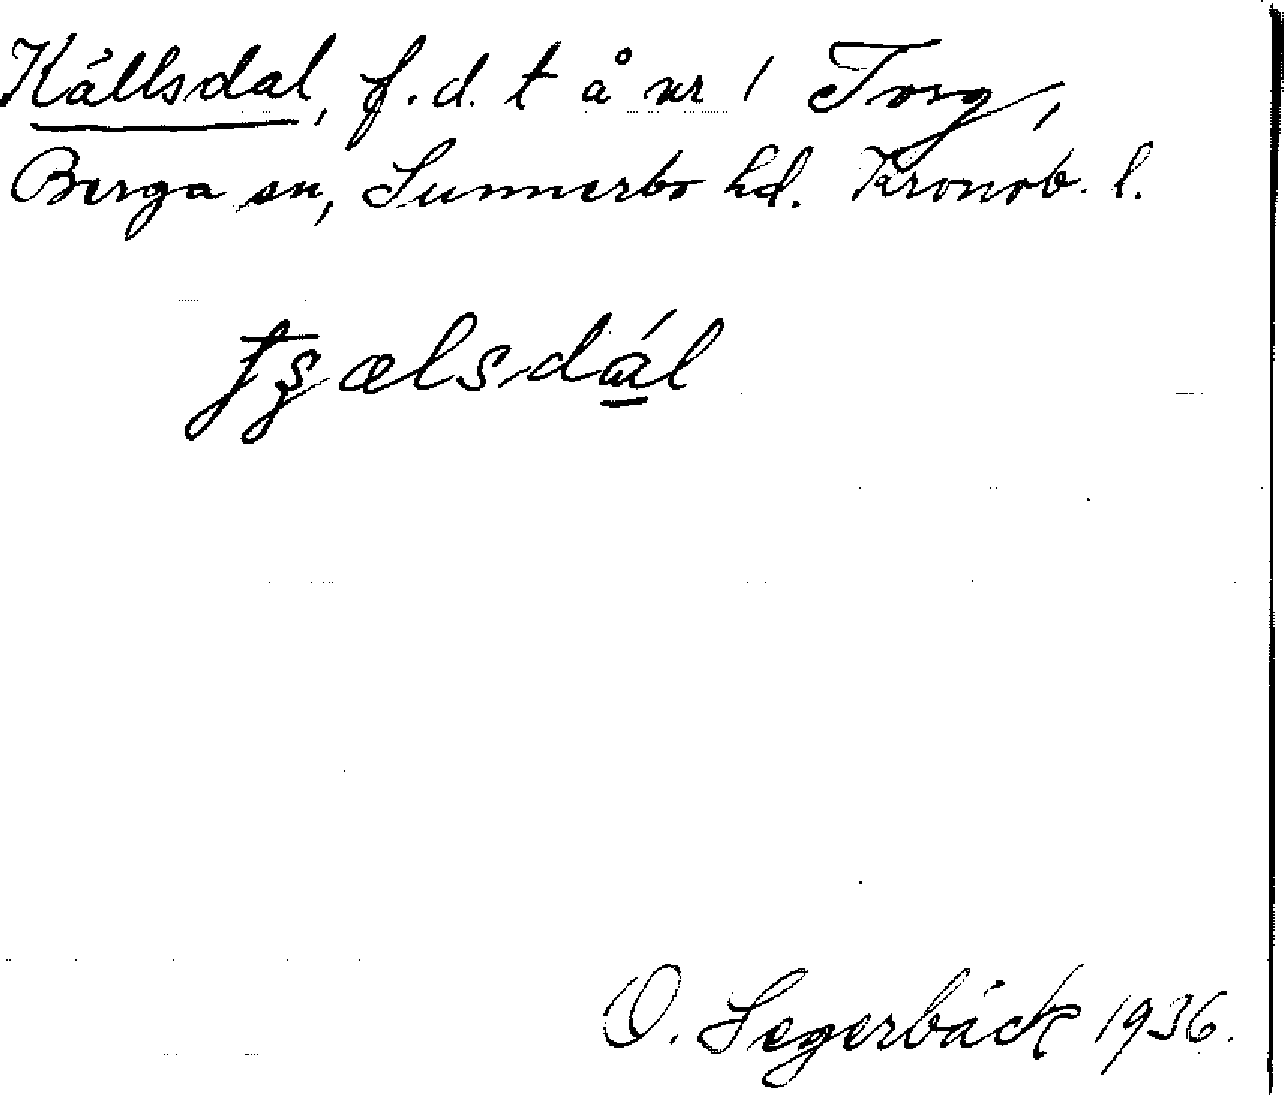 Källsdal, f.d. t å nr 1 Torg,
Berga sn, Sunnerbo hd. Kronob. l.
O. Segerbäck 1936.